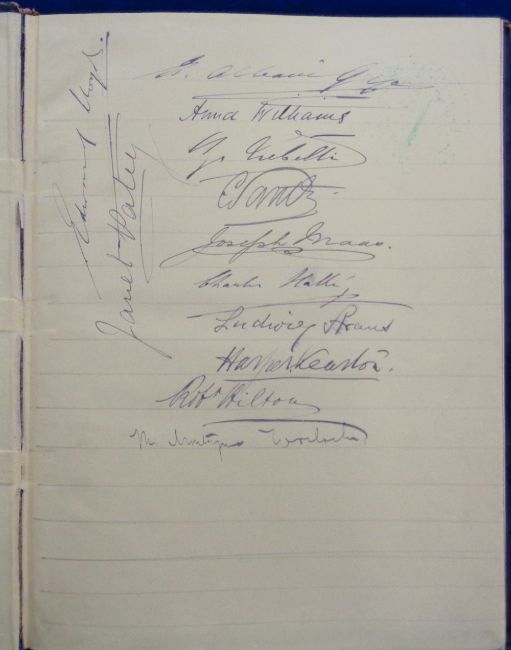 E. Albani Gye
Anna Williams
Z. Trebelli
C Santley
Joseph Maas.
Charles Hallé
Ludwig Straus
Harper Kearton.
Robt Hilton
W. Worlock
Edward Lloyd.
Janet Patey